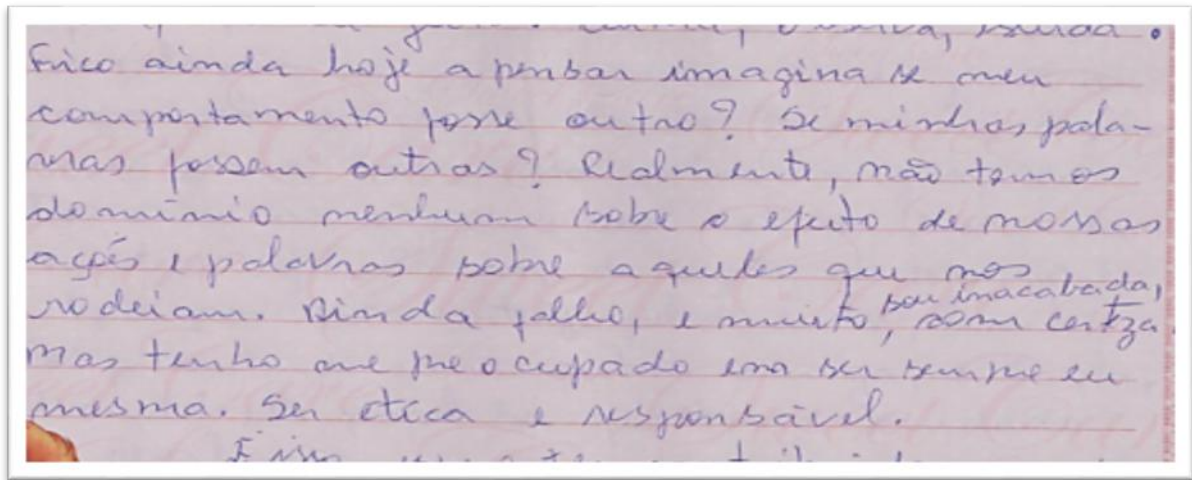 Fico ainda hoje a pensar imagina se meu
comportamento fosse outro? Se minhas pala-
vras fossem outras? Realmente, não temos
domínio nenhum sobre o efeito de nossas
ações e palavras sobre aqueles que nos
rodeiam. Ainda falho, e muito, sou inacabada, com certeza
mas tenho me preocupado em ser sempre eu
mesma. Ser ética e responsável.